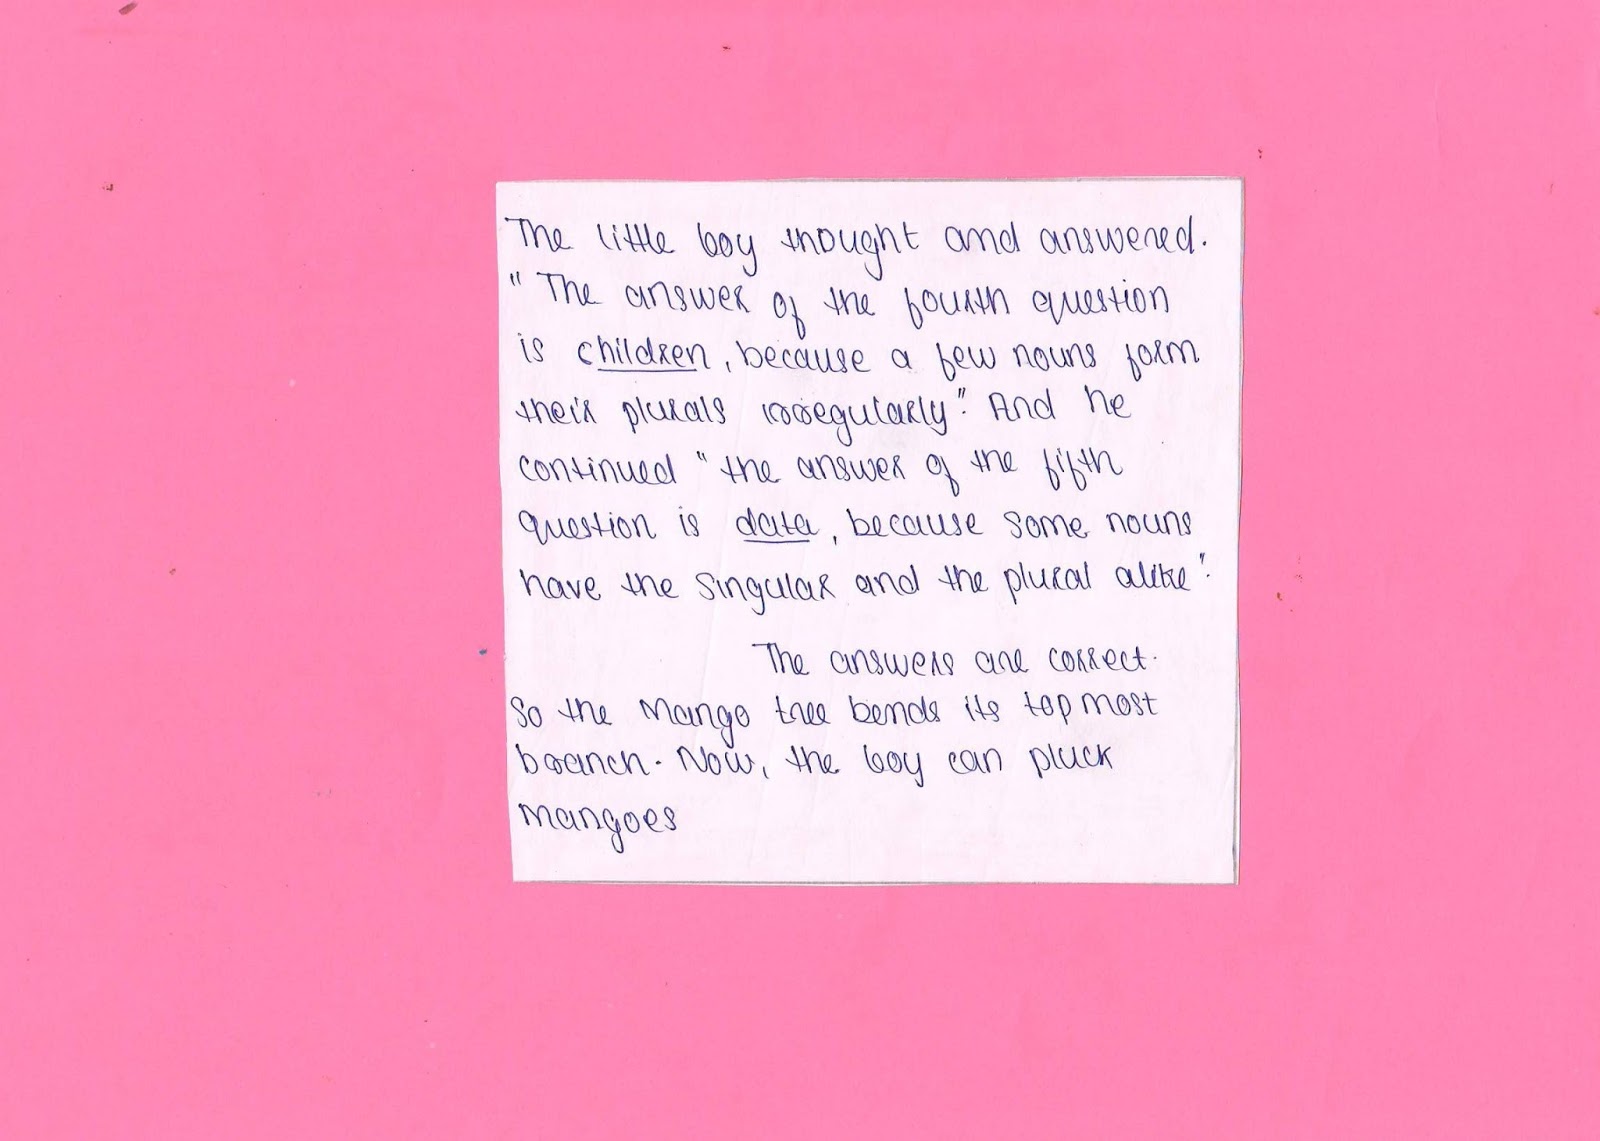 The little boy thought and answered.
" The answer of the fourth question
is children, because a few nouns form
their plurals irregularly". And he
continued " the answer of the fifth
question is data, because some nouns
have the singular and the plural alike".
The answers are correct.
So the Mango tree bends its topmost
branch. Now, the boy can pluck
mangoes